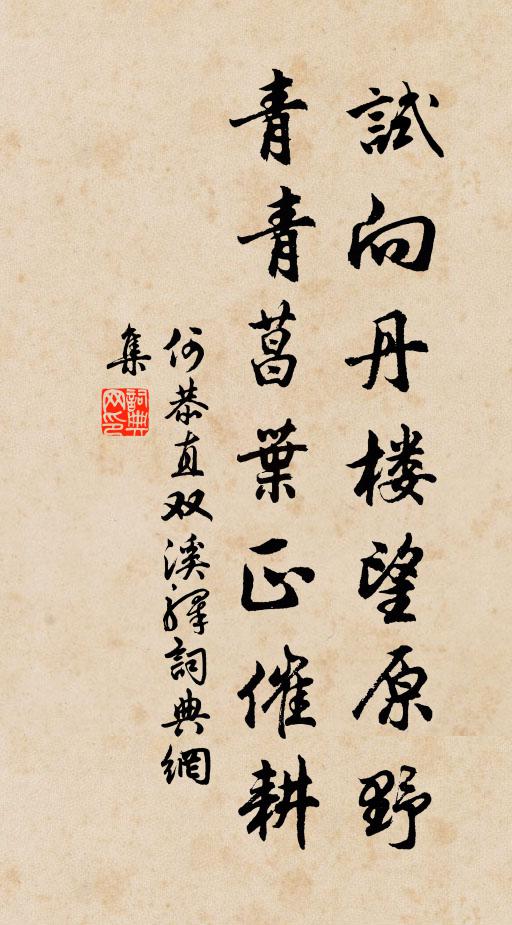 試向丹楼望原野
青青菖葉正催耕
何恭直双溪驛詞典網
集
詞典网印